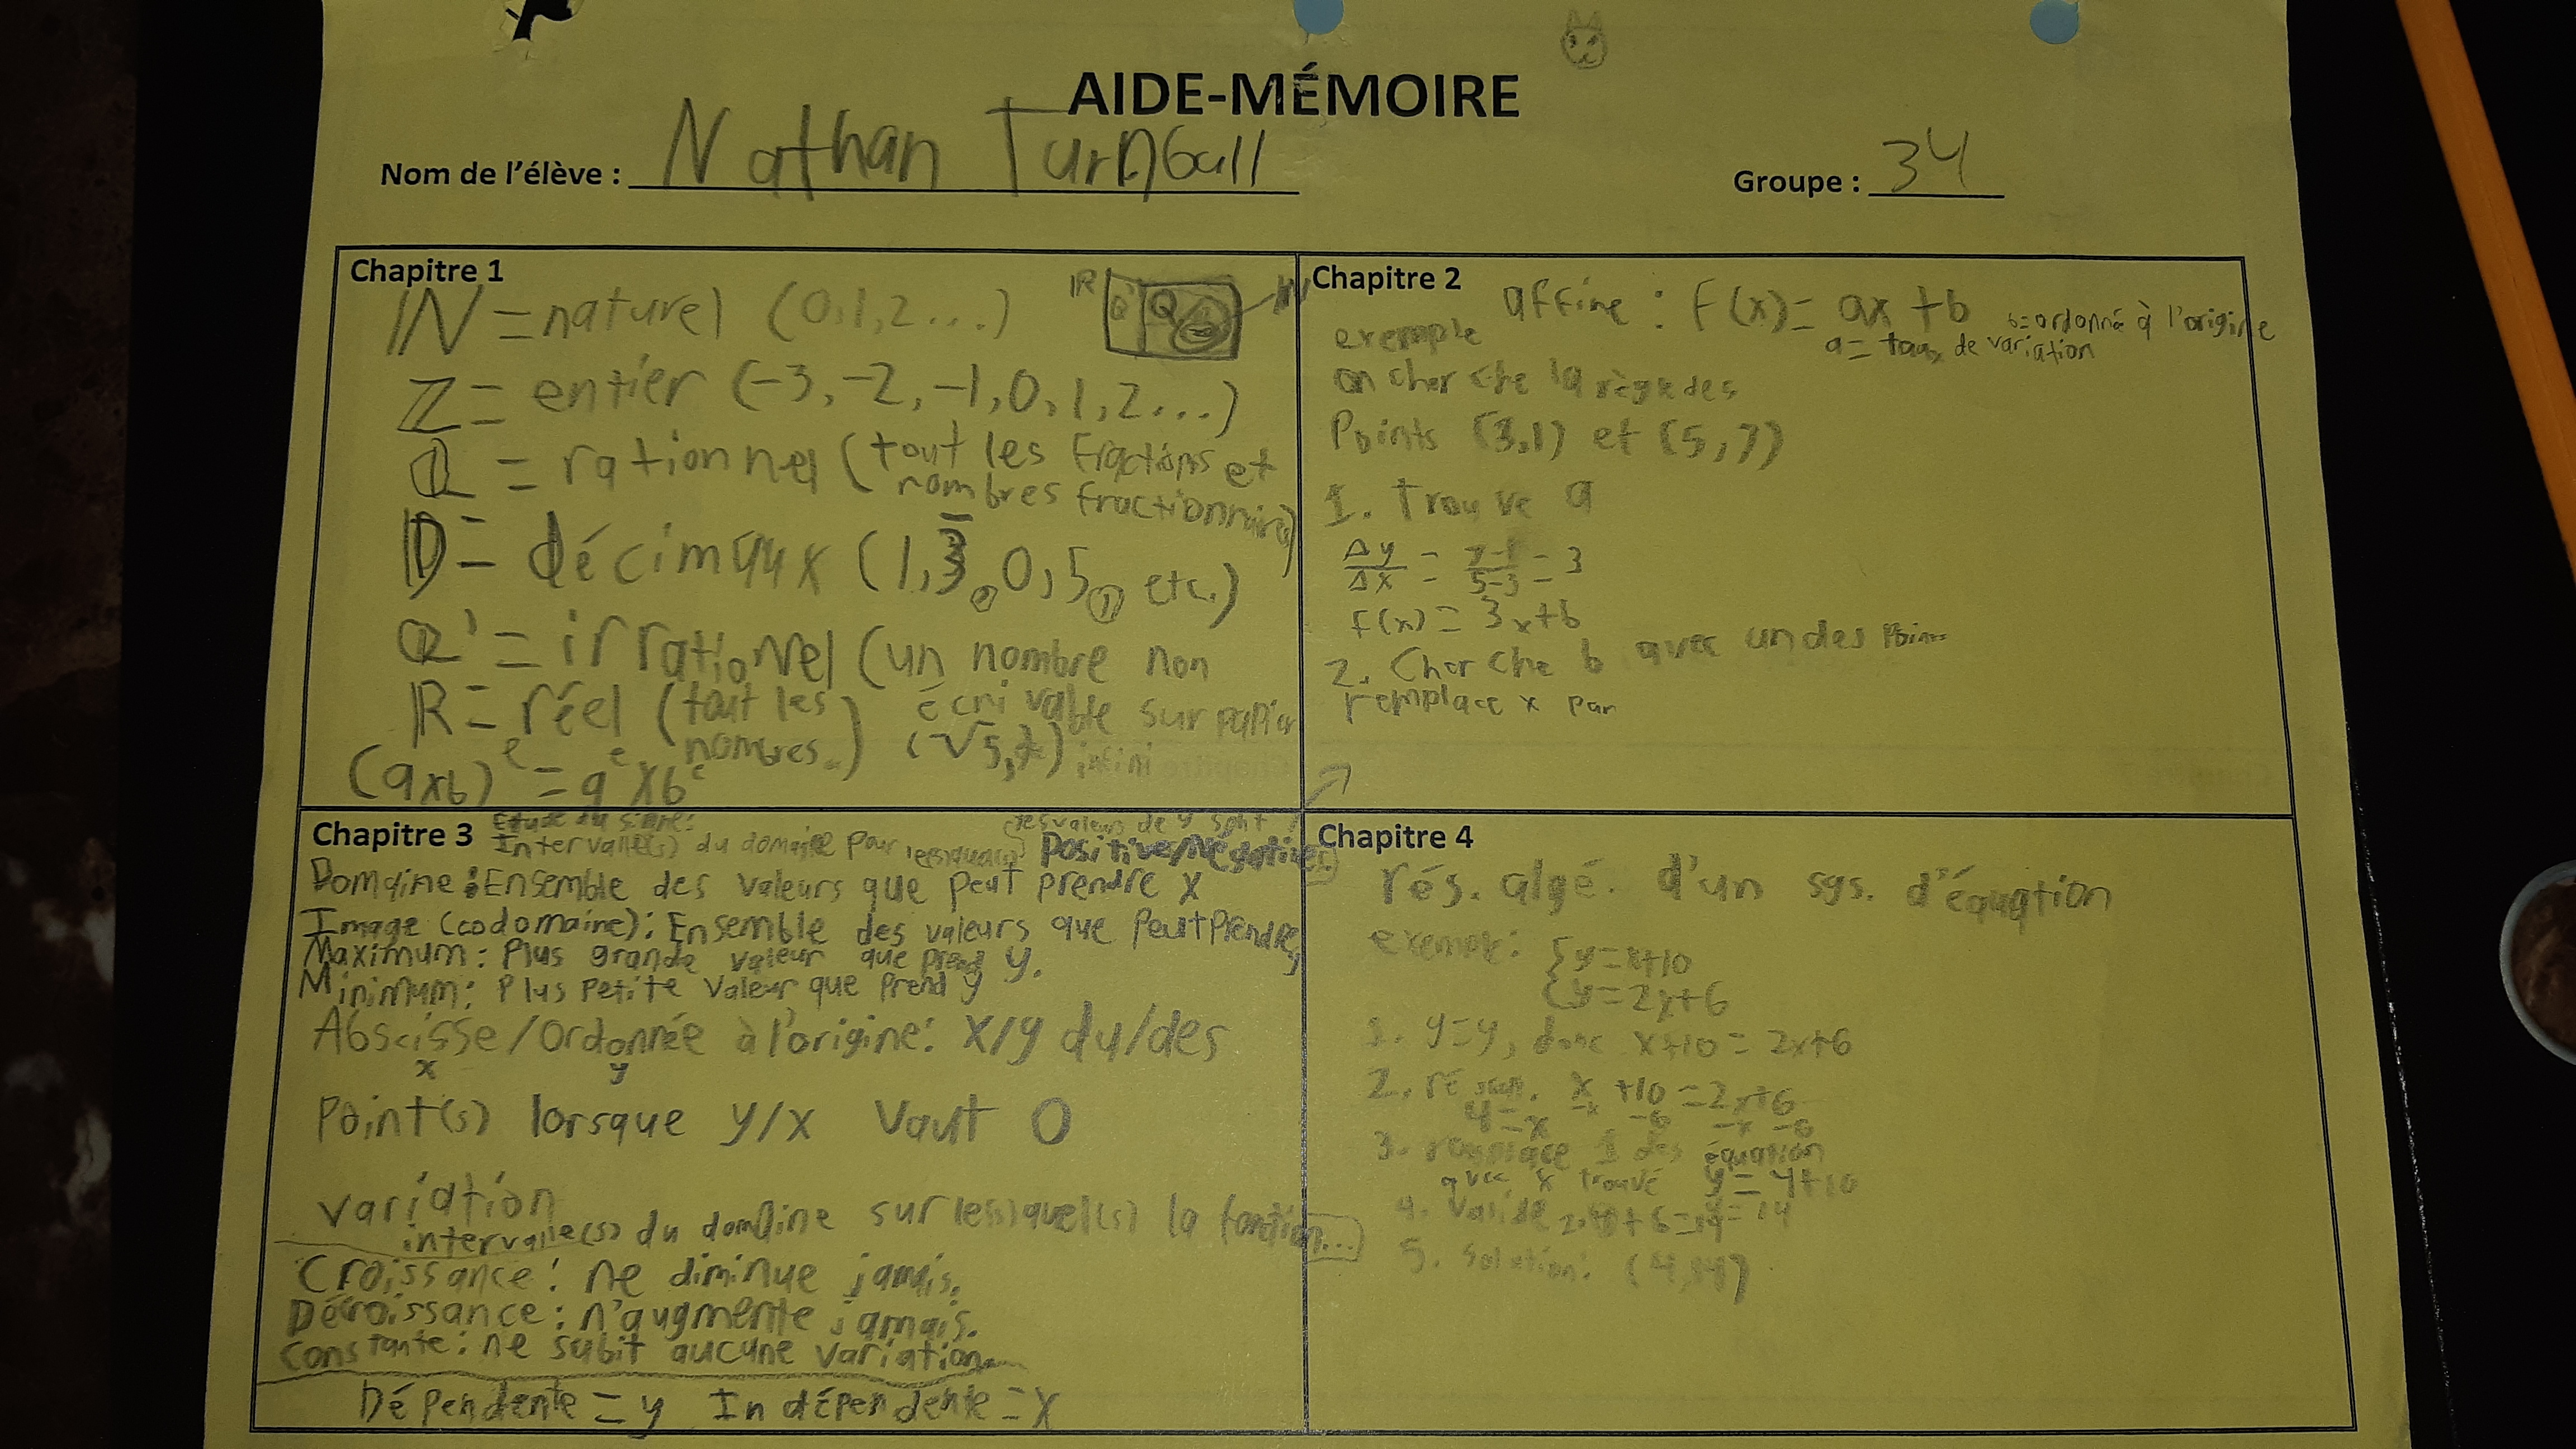 AIDE-MÉMOIRE
Nom de l'élève : Nathan Turnbull
Groupe : 34
Chapitre 1
ℕ = naturel (0,1,2...)
ℝ Q' Q ℕ
ℤ = entier (-3,-2,-1,0,1,2...)
ℚ = rationnel (tout les fractions et
nombres fractionnaire)
𝔻 = décimaux (1,3̅ , 0,5 , etc.)
ℚ' = irrationel (un nombre non
écrivable sur papier
ℝ = réel (tout les
nombres.) infini
(axb)ᵉ = aᵉxbᵉ
Chapitre 2
affine : f(x)= ax+b
b=ordonné à l'origine
a= taux de variation
exemple
on cherche la règle des
Points (3,1) et (5,7)
1. Trouve a
Δy/Δx = 7-1/5-3 = 3
f(x) = 3x+b
2. Cherche b avec un des Points
remplace x par
Chapitre 3
Étude du signe:
Intervalle(s) du domaine pour les valeurs de y sont
Positive/Négative
Domaine : Ensemble des valeurs que peut prendre x
Image (codomaine): Ensemble des valeurs que peut prendre y
Maximum: Plus grande valeur que prend y.
Minimum: Plus petite valeur que prend y
Abscisse/Ordonnée à l'origine: x/y du/des
x y
Point(s) lorsque y/x vaut 0
variation
intervalle(s) du domaine sur le(s)quel(s) la fonction...
Croissance: ne diminue jamais.
Décroissance: n'augmente jamais.
Constante: ne subit aucune variation
Dépendente = y Indépendente = x
Chapitre 4
rés. algé. d'un sys. d'équation
exemple: {y=x+10
{y=2x+6
1. y=y, donc x+10 = 2x+6
2. x+10 = 2x+6
-x -6 -x -6
4=x
3. remplace 1 des équation
avec x trouvé y=4+10
4. Valide 2·4+6=14 =14
5. Solution: (4,14)